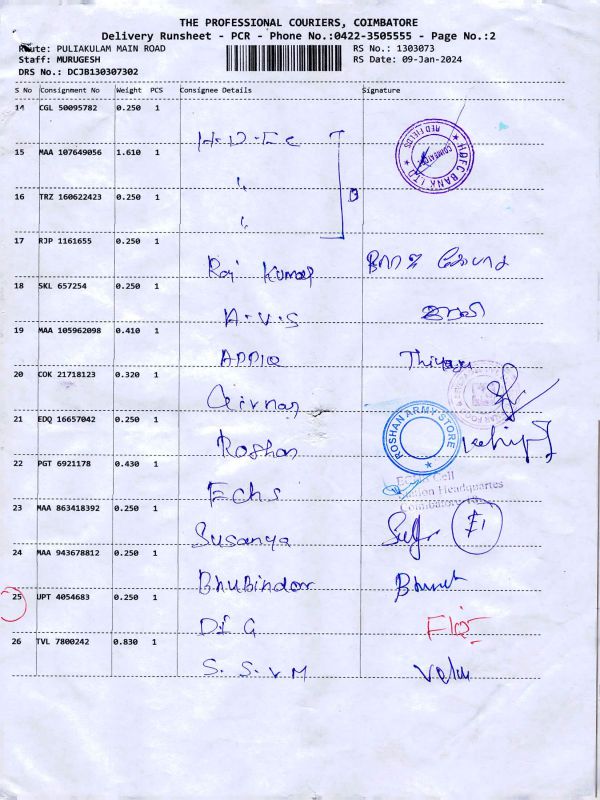 THE PROFESSIONAL COURIERS, COIMBATORE
Delivery Runsheet - PCR - Phone No.:0422-3505555 - Page No.:2
Route: PULIAKULAM MAIN ROAD RS No.: 1303073
Staff: MURUGESH RS Date: 09-Jan-2024
DRS No.: DCJB130307302
S No Consignment No Weight PCS Consignee Details Signature
14 CGL 50095782 0.250 1
H.D.F.C
HDFC BANK LTD RED FIELDS COIMBATORE
15 MAA 107649056 1.610 1
16 TRZ 160622423 0.250 1
17 RJP 1161655 0.250 1
Raj Kumar
18 SKL 657254 0.250 1
A.V.S
19 MAA 105962098 0.410 1
Thiyagu
20 COK 21718123 0.320 1
21 EDQ 16657042 0.250 1
Roshan ROSHAN ARMY STORE
22 PGT 6921178 0.430 1
Echs
Station Headquartes
Coimbatore
23 MAA 863418392 0.250 1
Susanya
24 MAA 943678812 0.250 1
Bhubindar
25 UPT 4054683 0.250 1
D.I.G
26 TVL 7800242 0.830 1
S.S.V.M Velu